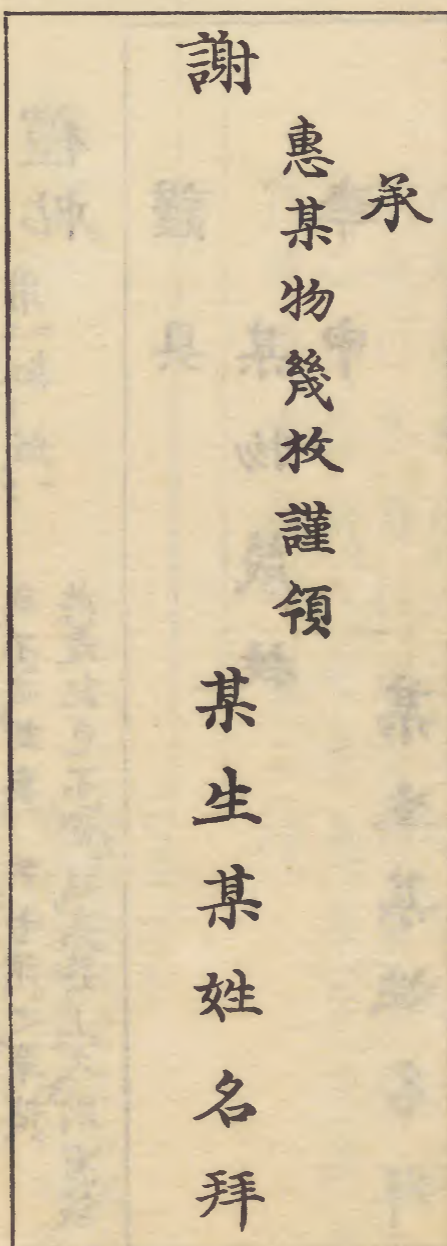 承
惠某物幾枚謹領
謝　某生某姓名拜